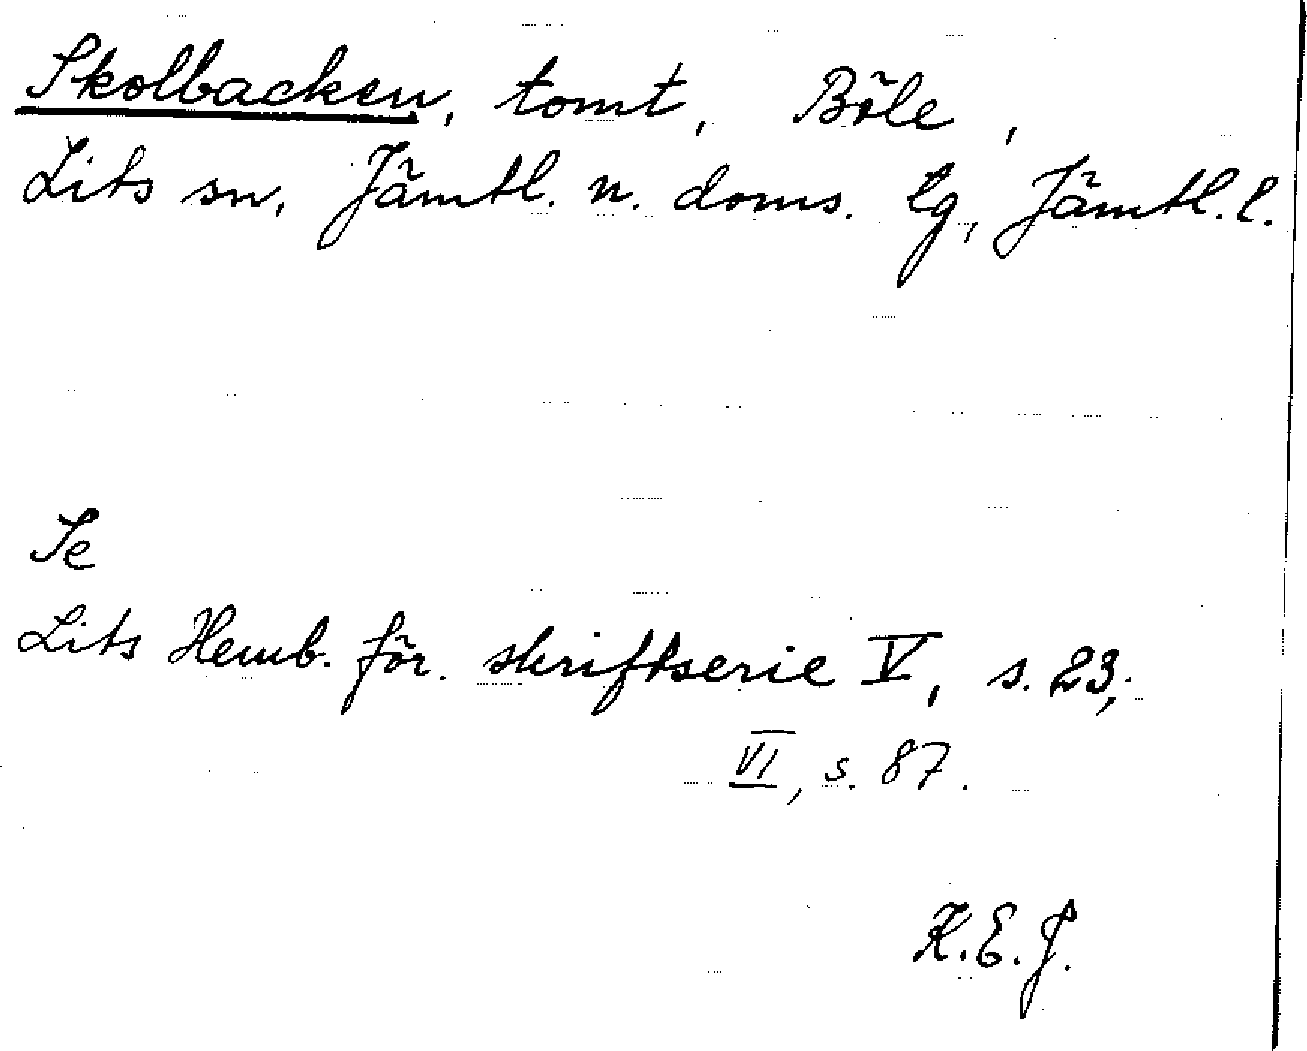 Skolbacken, tomt, Böle,
Lits sn, Jämtl. n. doms. lg, Jämtl. l.
Se
Lits Hemb. för. skriftserie V, s. 23;
VI, s. 87.
K.E.J.